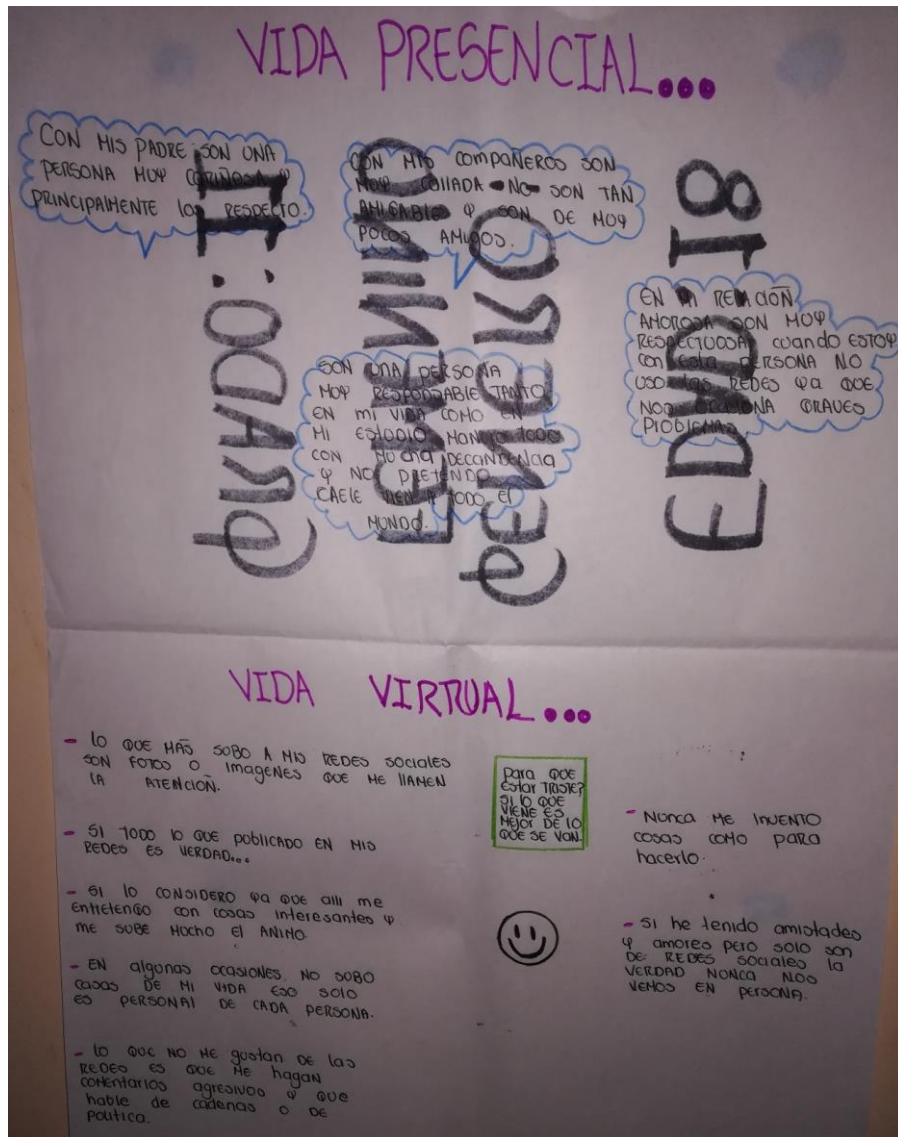 VIDA PRESENCIAL...
CON MIS PADRE SON UNA
PERSONA MUY CARIÑOSA Y
PRINCIPALMENTE LOS RESPECTO.
CON MIS COMPAÑEROS SON
MUY COLLADA NO SON TAN
AMIGABLE Y SON DE MUY
POCOS AMIGOS.
EN MI RELACIOÑ
AMOROSA SON MUY
RESPECTUOSA, CUANDO ESTOY
CON ESTA PERSONA NO
USO LAS REDES YA QUE
NOS OCASIONA GRAVES
PROBLEMAS.
SON UNA PERSONA
MUY RESPONSABLE TANTO
EN MI VIDA COMO EN
MI ESTUDIO MANEJO TODO
CON MUCHA DECANDENCIA
Y NO PRETENDO
CAELE BIEN A TODO EL
MUNDO.
GRADO: 11
GENERO
FEMENINO
EDAD 18
VIDA VIRTUAL...
- LO QUE MAS SUBO A MIS REDES SOCIALES
SON FOTOS O IMAGENES QUE ME LLAMEN
LA ATENCIOÑ.
- SI TODO LO QUE PUBLICADO EN MIS
REDES ES VERDAD...
- SI LO CONSIDERO YA QUE ALLI ME
ENTRETENGO CON COSAS INTERESANTES Y
ME SUBE MUCHO EL ANIMO.
- EN ALGUNAS OCASIONES. NO SUBO
COSAS DE MI VIDA ESO SOLO
ES PERSONAL DE CADA PERSONA.
- LO QUE NO ME GUSTAN DE LAS
REDES ES QUE ME HAGAN
COMENTARIOS AGRESIVOS Y QUE
HABLE DE CADENAS O DE
POLITICA.
PARA QUE
ESTAR TRISTE?
SI LO QUE
VIENE ES
MEJOR DE LO
QUE SE VAN.
- NUNCA ME INVENTO
COSAS COMO PARA
HACERLO.
- SI HE TENIDO AMISTADES
Y AMORES PERO SOLO SON
DE REDES SOCIALES LA
VERDAD NUNCA NOS
VEMOS EN PERSONA.